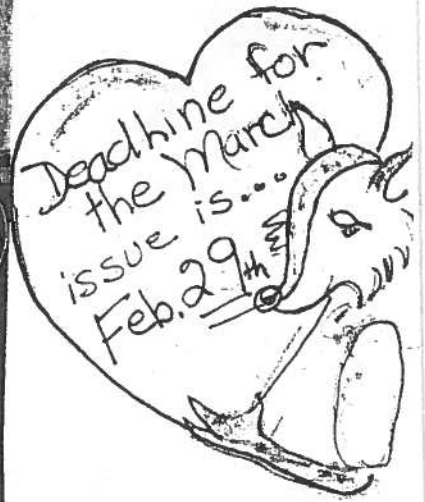 Deadline for
the March
issue is...
Feb. 29th